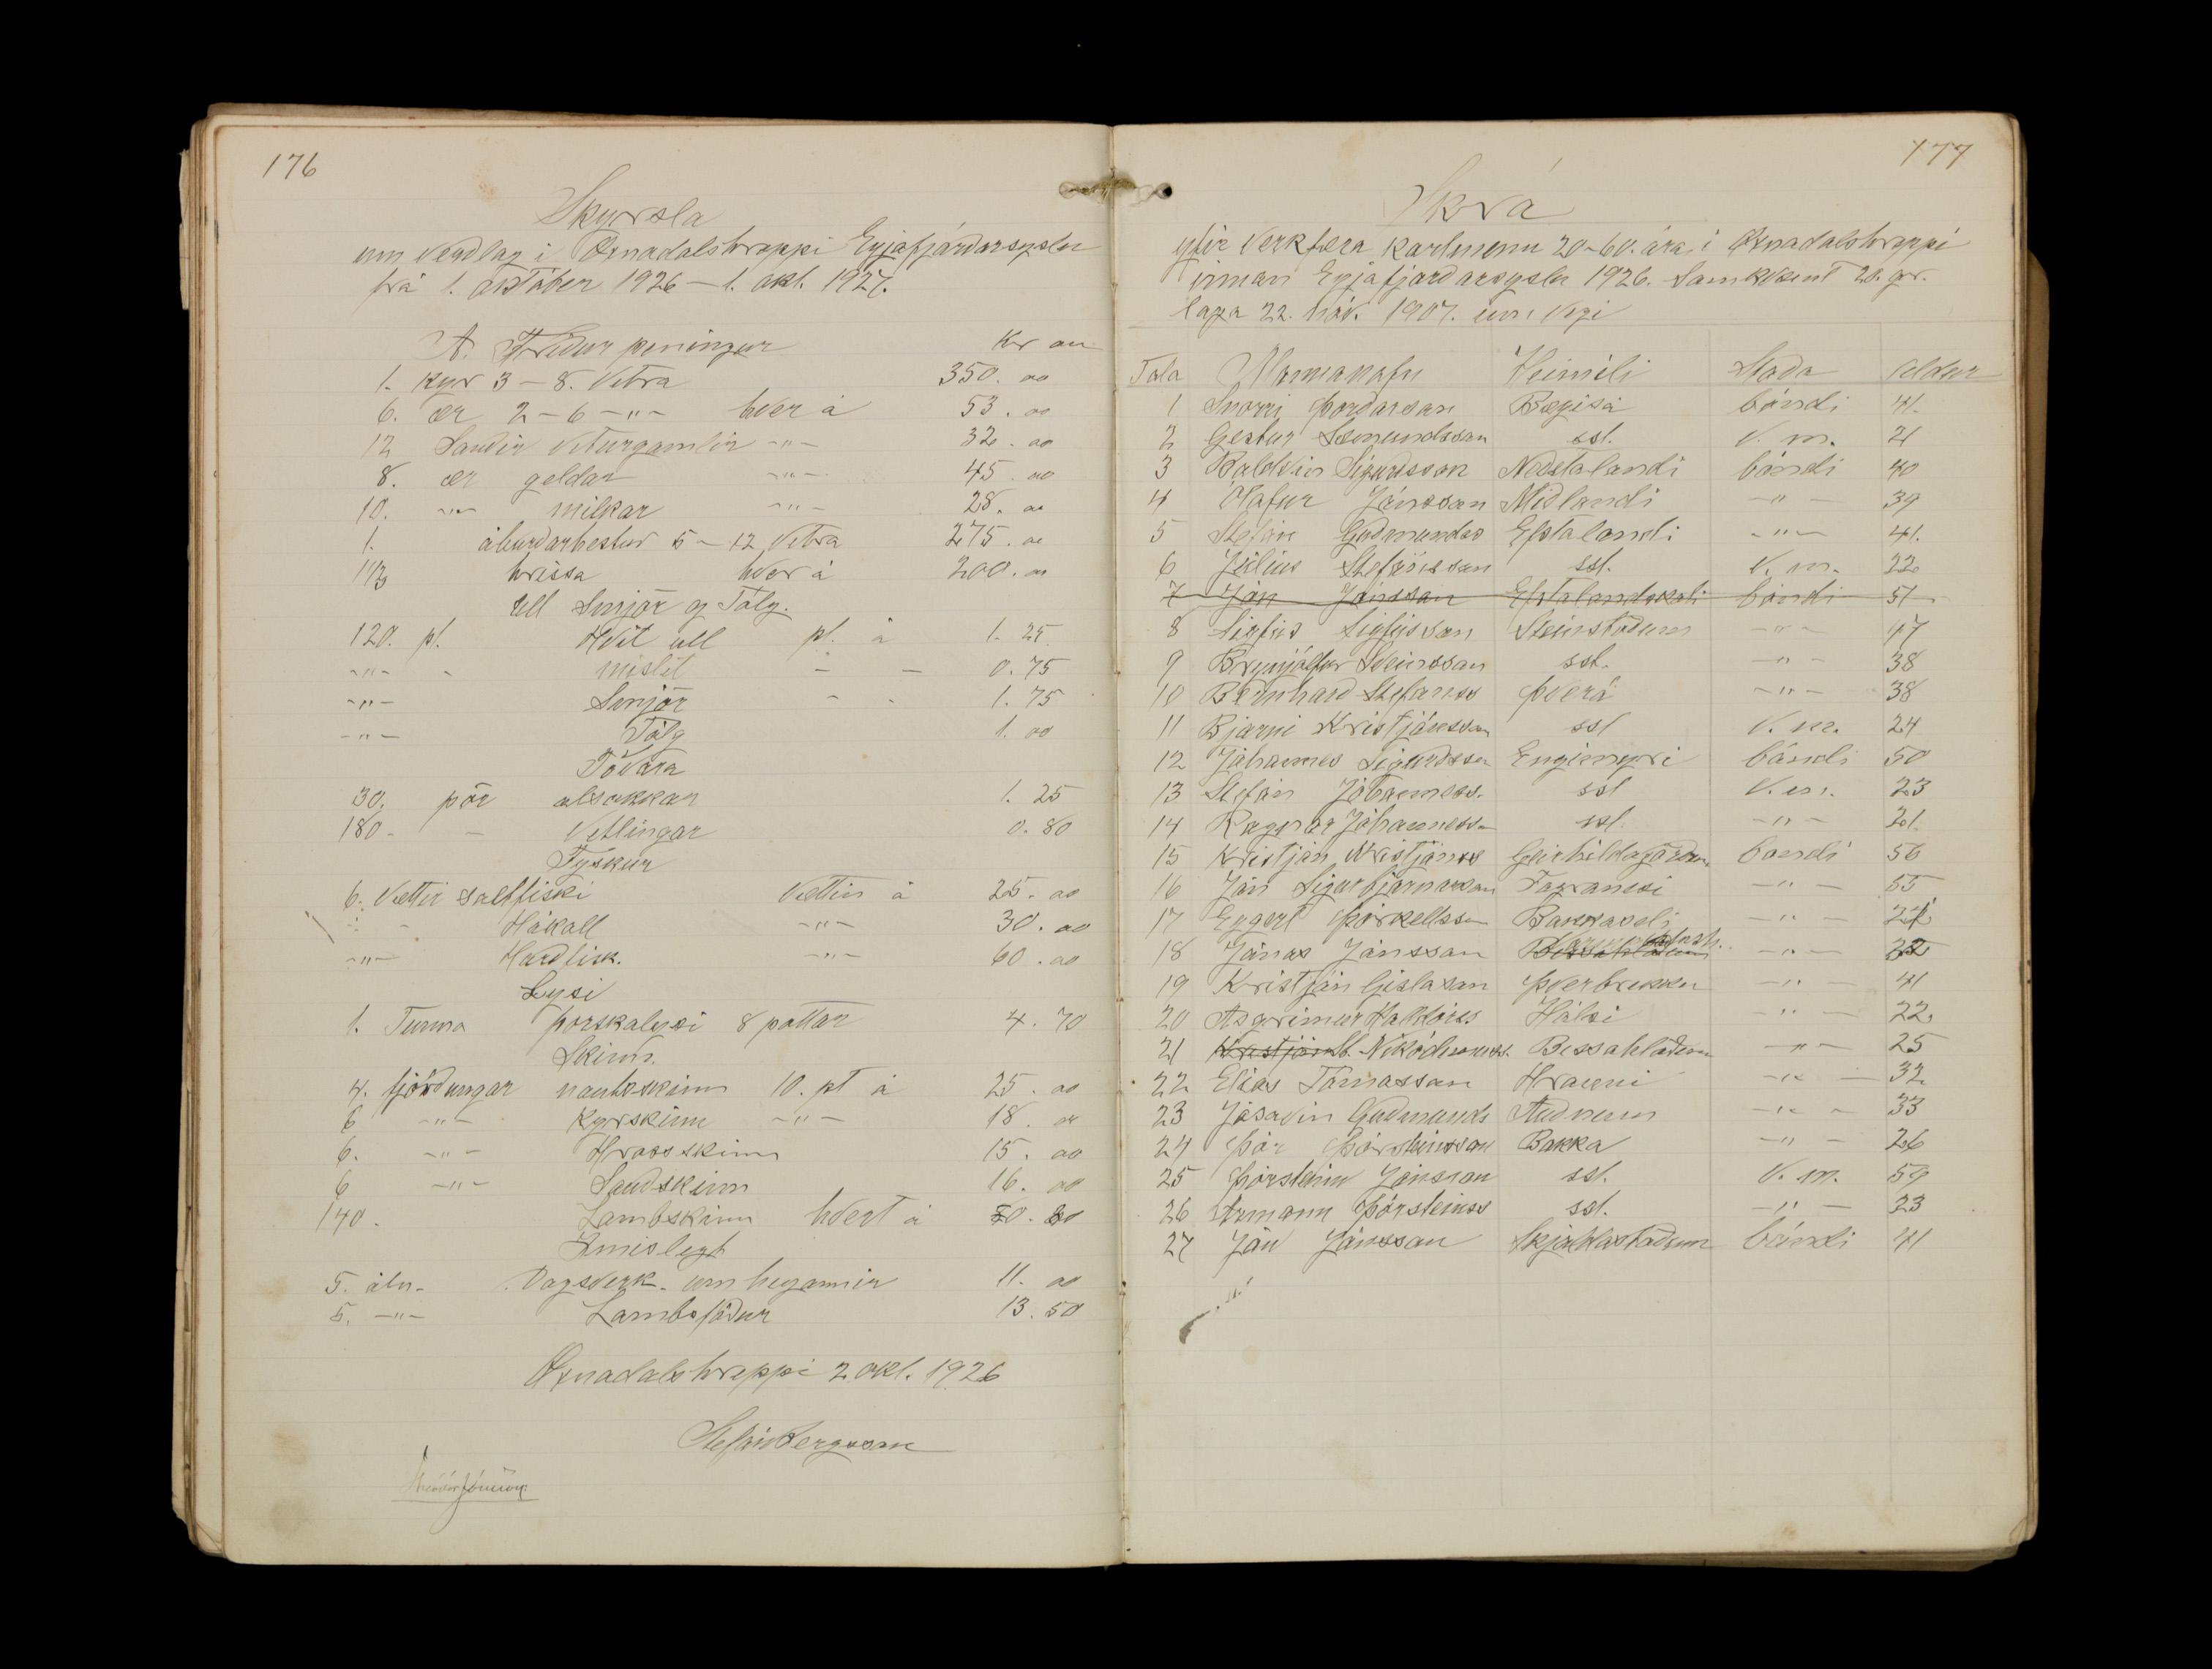 176
Skyrsla
um verdlag i Øxnadalshreppi Eyjafjárdarsyslu
frá 1. október 1926 – 1. okt. 1927.
A. Fridur peningur Kr au
1. Kyr 3 – 8. vetra 350. 00
6. ær 2 – 6 – " – hver á 53. 00
12 Saudir veturgamlir – " – 32. 00
8. ær geldar – " – 45. 00
10. – " – milkar – " – 28. 00
1. áburdarhestur 5 – 12 vetra 275. 00
1 1/3 hrissa hver á 200. 00
Ull Smjör og Tólg.
120. pt. Hvit ull pt. á 1. 25
– " – - mislit – – 0. 75
– " – Smjör - - 1. 75
– " – Tólg 1. 00
Tóvara
30. pör alsokkar 1. 25
180 - – Vetlingar 0. 80
Fyskur
6. Vættir saltfiski Vættin á 25. 00
Hákall – " – 30. 00
– " – Hardfisk. – " – 60. 00
Lysi
1. Tunna þorskalysi 8 pottar 4. 70
Skinn.
4. fjórdungar nautsskinn 10. pt á 25. 00
6 – " – Kyrskinn – " – 18. 00
6. – " – Hrossskinn 15. 00
6 – " – Saudskinn 16. 00
140. Lambskinn hvert á
Ymislegt
5. áln. Dagsverk. um heyannir 11. 00
5. – " – Lambsfódur 13. 50
Øxnadalshreppi 2 okt. 1926
Stefán Bergsson
177
Skrá
yfir verkfæra karlmenn 20–60. ára i Øxnadalshreppi
innan Eyjafjardarsyslu 1926. Samkvæmt 20. gr.
laga 22. nóv. 1907. um vegi
Tala Mannanöfn Heimili Stada Aldur
1 Snorri þordarson Bægisá bóndi 41.
2 Gestur Sæmundsson sst. v. m. 21
3 Baldvin Sigurdsson Nedstalandi bóndi 40
4 Ólafur Jónsson Midlandi – " – 39
5 Stefán Gudmundss Efstalandi – " – 41.
6 Júlíus Stefánsson sst. v. m. 22
7 Jón Jónsson Efstalandskoti bóndi 51
8 Sigfús Sigfússon Steinstödum – " – 47
9 Brynjólfur Sveinsson sst. – " – 38
10 Bernhard Stefánss þverá – " – 38
11 Bjarni Kristjánsson sst v. m. 24
12 Jóhannes Sigurdsson Engimyri bóndi 50
13 Stefán Jóhanness. sst v. m. 23
14 Ragnar Jóhannesson sst. – " – 21.
15 Kristján Kristjánss Geirhildagördum bóndi 56
16 Jón Sigurbjarnarson Fagranesi – " – 55
17 Eggert þorkellsson Bakkaseli – " –
18 Jónas Jónsson – " –
19 Kristján Gislason þverbrekku – " – 41
20 Asgrimur Halldórss Hálsi – " – 22.
21 Nikódemuss. Bessahlödum – " – 25
22 Elías Tómasson Hrauni – " – 32
23 Jósavin Gudmunds Audnum – " – 33
24 þór þorsteinsson Bakka – " – 26
25 þorsteinn Jónsson sst. v. m. 59
26 Armann þorsteinss sst. – " – 23
27 Jón Jónsson Skjaldastödum bóndi 41